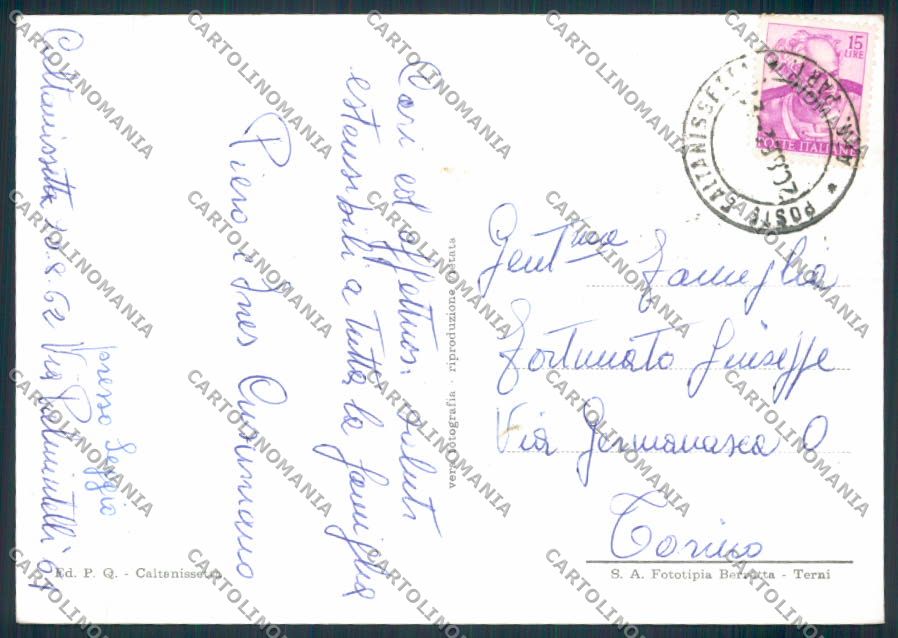 Caltanissetta 20.8.62 Via
presso
Cari ed affettuosi saluti
estensibili a tutta la famiglia
Piero e Ines Cusumano
Ed. P. Q. - Caltanissetta
vera fotografia - riproduzione vietata
15
LIRE
POSTE ITALIANE
CALTANISSETTA
POSTE
Gent.ma Famiglia
Fortunato Giuseppe
Via Germanasca 0
Torino
S. A. Fototipia Berretta - Terni
CARTOLINOMANIA